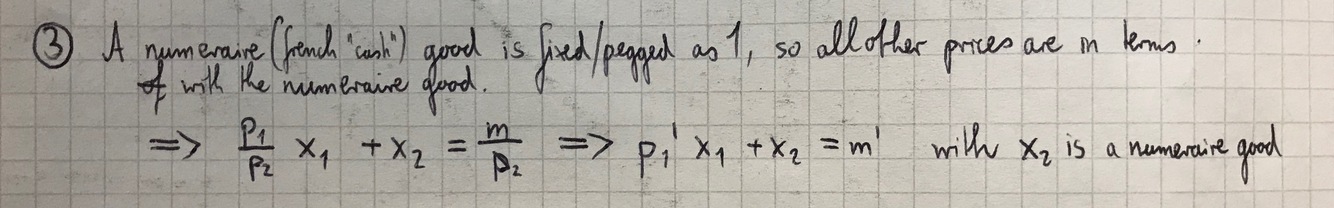 ③ A numeraire (french "cash") good is fixed/pegged as 1, so all other prices are in terms
of with the numeraire good.
=> p₁/p₂ x₁ + x₂ = m/p₂ => p₁' x₁ + x₂ = m' with x₂ is a numeraire good